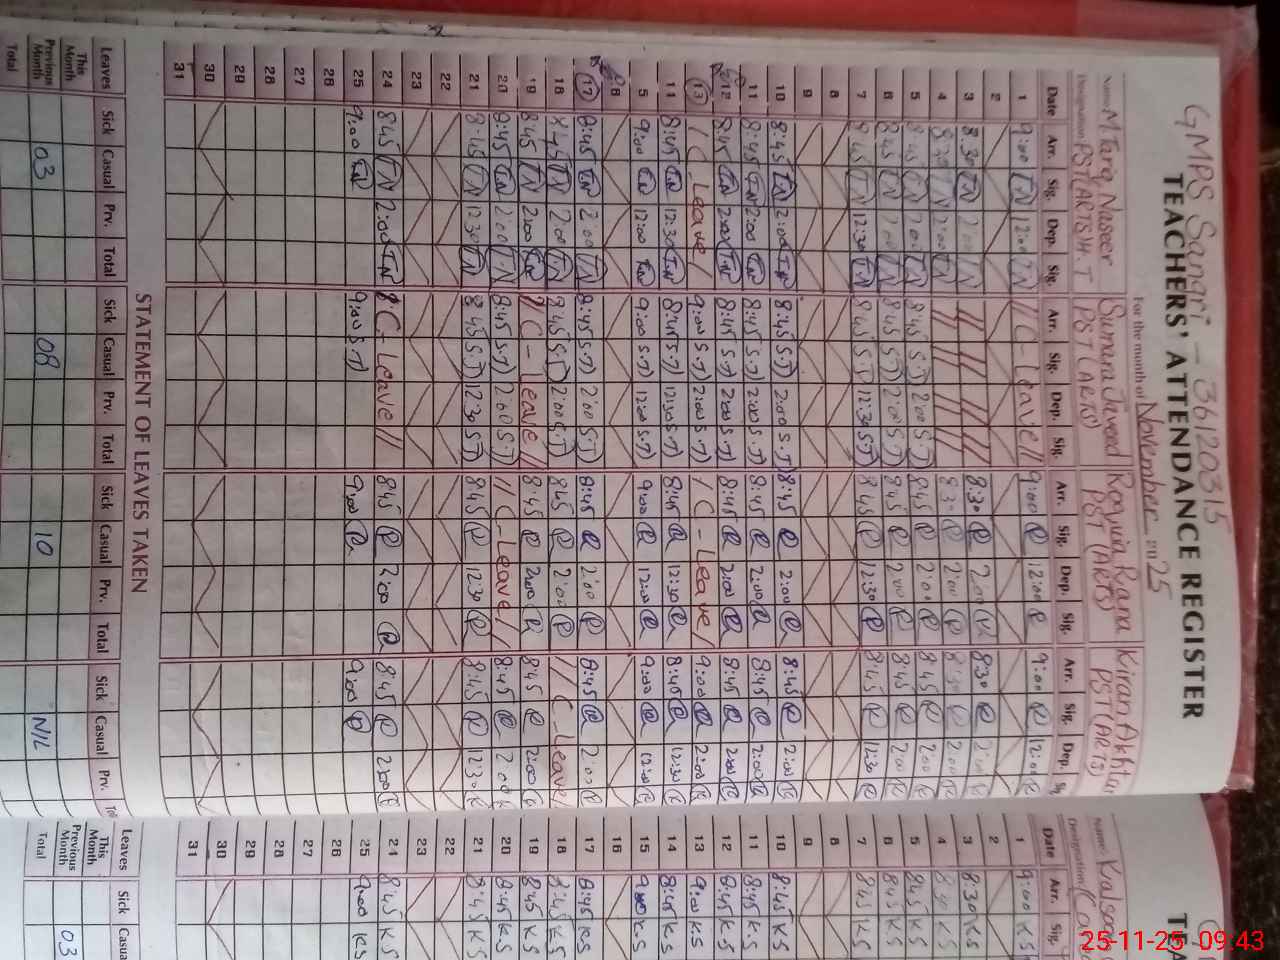 GMPS Sanari - 36120315
TEACHERS' ATTENDANCE REGISTER
For the month of November 2025
Name M Tariq Naseer Sumara Javeed Roquia Rana Kiran Akhtar
Designation PST(ARTS)H.T PST(ARTS) PST(ARTS) PST(ARTS)
Date Arr. Sig. Dep. Sig. Arr. Sig. Dep. Sig. Arr. Sig. Dep. Sig. Arr. Sig. Dep.
1 9:00 TN 12:00 TN // C-Leave // 9:00 R 12:00 R 9:00 R 12:00 R
2
3 8:30 TN 2:00 TN 8:30 R 2:00 R 8:30 R 2:00
4 8:30 TN 2:00 TN 8:30 R 2:00 R 8:30 R 2:00 R
5 8:45 TN 2:00 TN 8:45 S.J 2:00 S.J 8:45 R 2:00 R 8:45 R 2:00 R
6 8:45 TN 2:00 TN 8:45 S.J 2:00 S.J 8:45 R 2:00 R 8:45 R 2:00 R
7 8:45 TN 12:30 TN 8:45 S.J 12:30 S.J 8:45 R 12:30 R 8:45 R 12:30 R
8
9
10 8:45 TN 2:00 TN 8:45 S.J 2:00 S.J 8:45 R 2:00 R 8:45 R 2:00 R
11 8:45 TN 2:00 TN 8:45 S.J 2:00 S.J 8:45 R 2:00 R 8:45 R 2:00 R
12 8:45 TN 2:00 TN 8:45 S.J 2:00 S.J 8:45 R 2:00 R 8:45 R 2:00 R
13 / C-Leave / 9:00 S.J 2:00 S.J / C-Leave / 9:00 R 2:00 R
14 8:45 TN 12:30 TN 8:45 S.J 12:30 S.J 8:45 R 12:30 R 8:45 R 12:30 R
5 9:00 TN 12:00 TN 9:00 S.J 12:00 S.J 9:00 R 12:00 R 9:00 R 12:00 R
16
17 8:45 TN 2:00 TN 8:45 S.J 2:00 S.J 8:45 R 2:00 R 8:45 R 2:00 R
18 8:45 TN 2:00 TN 8:45 S.J 2:00 S.J 8:45 R 2:00 R // C-Leave /
19 8:45 TN 2:00 TN // C-Leave // 8:45 R 2:00 R 8:45 R 2:00 R
20 8:45 TN 2:00 TN 8:45 S.J 2:00 S.J // C-Leave / 8:45 R 2:00 R
21 8:45 TN 12:30 TN 8:45 S.J 12:30 S.J 8:45 R 12:30 R 8:45 R 12:30 R
22
23
24 8:45 TN 2:00 TN // C-Leave // 8:45 R 2:00 R 8:45 R 2:00 R
25 9:00 TN 9:00 S.J 9:00 R 9:00 R
26
27
28
29
30
31
STATEMENT OF LEAVES TAKEN
Leaves Sick Casual Prv. Total Sick Casual Prv. Total Sick Casual Prv. Total Sick Casual Prv.
This Month
Previous Month 03 08 10 NIL
Total
Name: Kalsoom
Designation
Date Arr. Sig.
1 9:00 KS
2
3 8:30 KS
4 8:30 KS
5 8:45 KS
6 8:45 KS
7 8:45 KS
8
9
10 8:45 KS
11 8:45 KS
12 8:45 KS
13 9:00 KS
14 8:45 KS
15 9:00 KS
16
17 8:45 KS
18 8:45 KS
19 8:45 KS
20 8:45 KS
21 8:45 KS
22
23
24 8:45 KS
25 9:00 KS
26
27
28
29
30
31
Leaves Sick Casual
This Month
Previous Month 03
Total
25-11-25 09:43